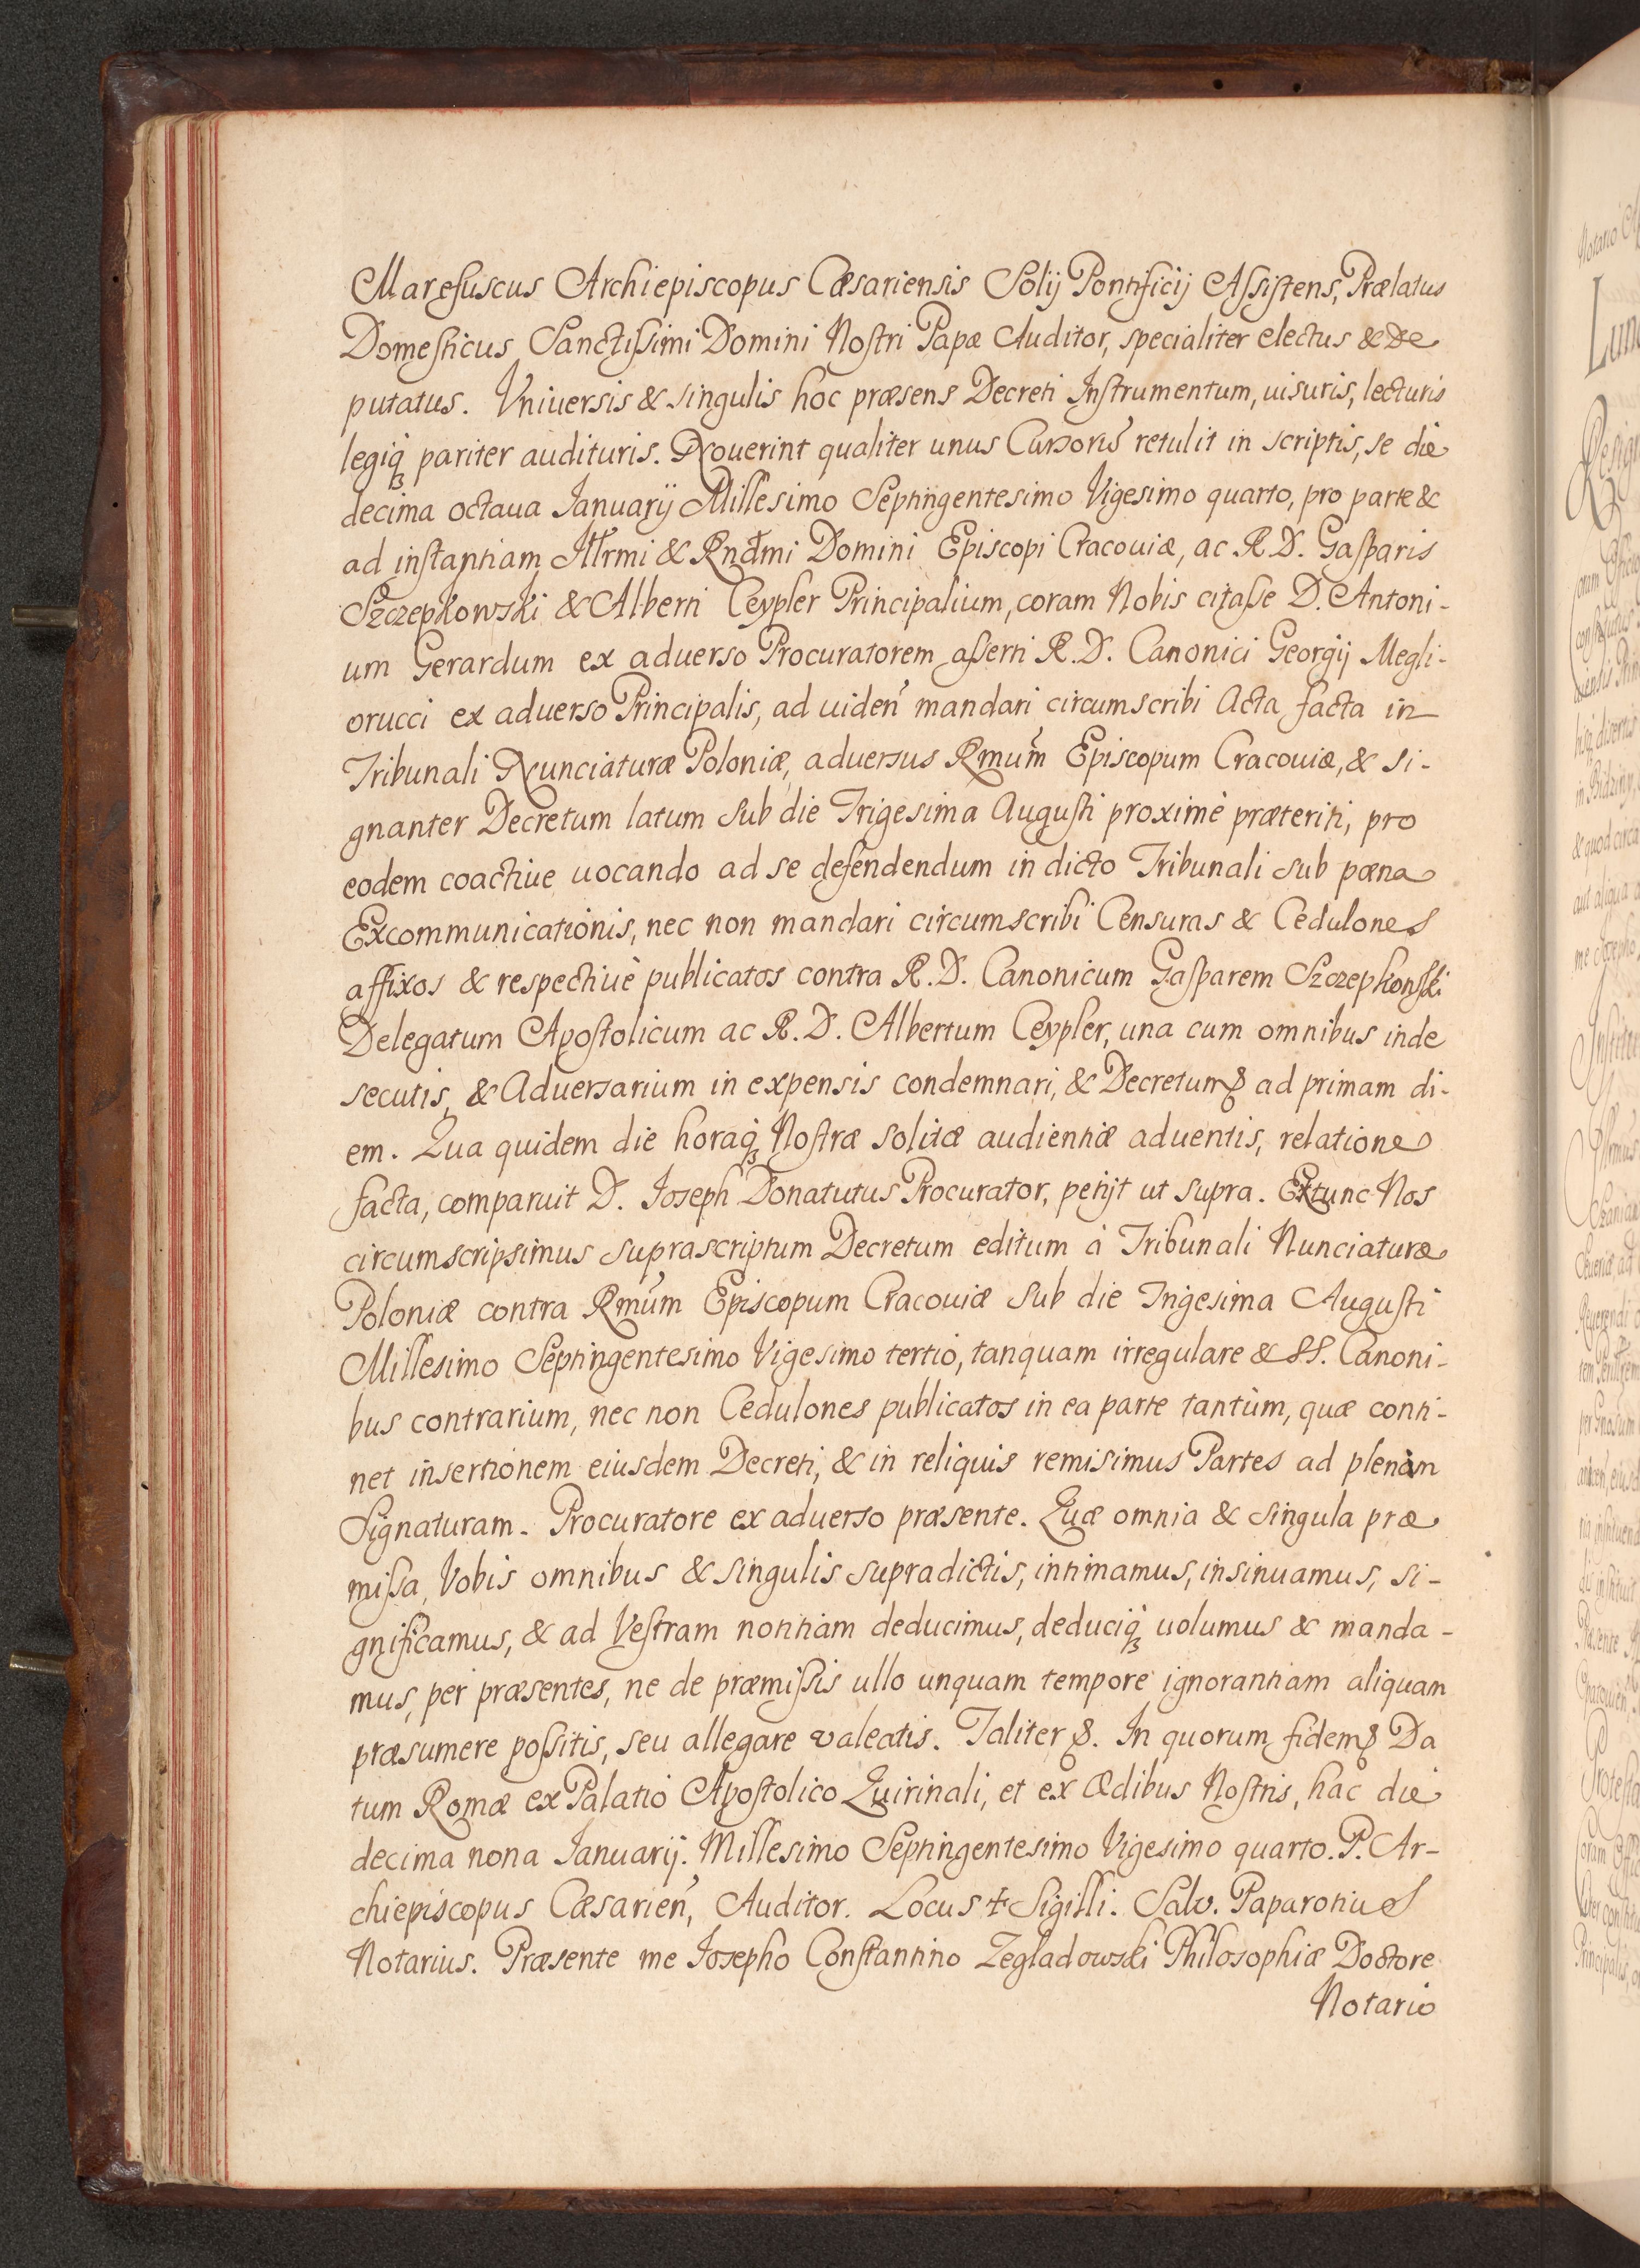 Marefuscus Archiepiscopus Cæsariensis Solij Pontificij Assistens, Prælatus
Domesticus Sanctissimi Domini Nostri Papæ Auditor, specialiter electus & de
putatus. Vniuersis & singulis hoc præsens Decreti Instrumentum, uisuris, lecturis
legiq́ꝫ pariter audituris. Nouerint qualiter unus Cursorũ retulit in scriptis, se die
decima octaua Januarij Millesimo Septingentesimo Vigesimo quarto, pro parte &
ad instantiam Illrmi & Rndmi Domini Episcopi Cracouiæ, ac R.D. Gasparis
Szczepkowski & Alberti Ceypler Principalium, coram Nobis citasse D. Antoni-
um Gerardum ex aduerso Procuratorem asserti R.D. Canonici Georgij Megli-
orucci ex aduerso Principalis, ad uideñ mandari circumscribi Acta facta in
Tribunali Nunciaturæ Poloniæ, aduersus Rmum̃ Episcopum Cracouiæ, & si-
gnanter Decretum latum sub die Trigesima Augusti proximè præteriti, pro
eodem coactiue uocando ad se defendendum in dicto Tribunali sub pœna
Excommunicationis, nec non mandari circumscribi Censuras & Cedulones
affixos & respectiuè publicatos contra R.D. Canonicum Gasparem Szczepkonski
Delegatum Apostolicum ac R.D. Albertum Ceypler, una cum omnibus inde
secutis, & Aduersarium in expensis condemnari, & Decretum& ad primam di-
em. Qua quidem die horaq́ꝫ Nostræ solitæ audientiæ aduentis, relatione
facta, comparuit D. Joseph Donatutus Procurator, petijt ut supra. Extunc Nos
circumscripsimus suprascriptum Decretum editum à Tribunali Nunciaturæ
Poloniæ contra Rmum̃ Episcopum Cracouiæ sub die Trigesima Augusti
Millesimo Septingentesimo Vigesimo tertiò, tanquam irregulare & SS. Canoni-
bus contrarium, nec non Cedulones publicatos in ea parte tantùm, quæ conti-
net insertionem eiusdem Decreti, & in reliquis remisimus Partes ad plenam
Signaturam. Procuratore ex aduerso præsente. Quæ omnia & singula præ
missa, Vobis omnibus & singulis supradictis, intimamus, insinuamus, si-
gnificamus, & ad Vestram notitiam deducimus, deduciq́ꝫ uolumus & manda-
mus, per præsentes, ne de præmissis ullo unquam tempore ignorantiam aliquam
præsumere possitis, seu allegare valeatis. Taliter &. In quorum fidem& Da
tum Romæ ex Palatio Apostolico Quirinali, et ex Ædibus Nostris, hac die
decima nona Januarij. Millesimo Septingentesimo Vigesimo quarto. P. Ar-
chiepiscopus Cæsarieñ, Auditor. Locus ✝ Sigilli. Salv. Paparonius
Notarius. Præsente me Josepho Constantino Zegladowski Philosophiæ Doctore
Notario